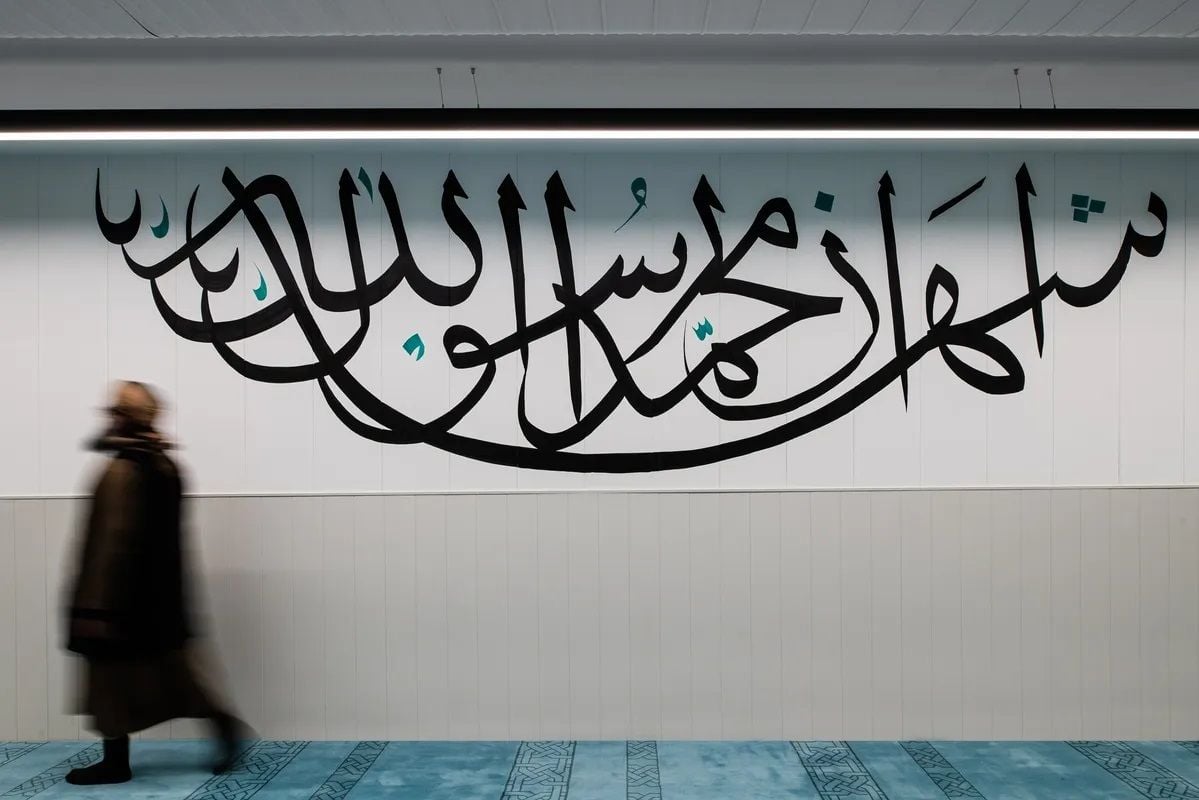 اشهد ان محمّدا رسول الله